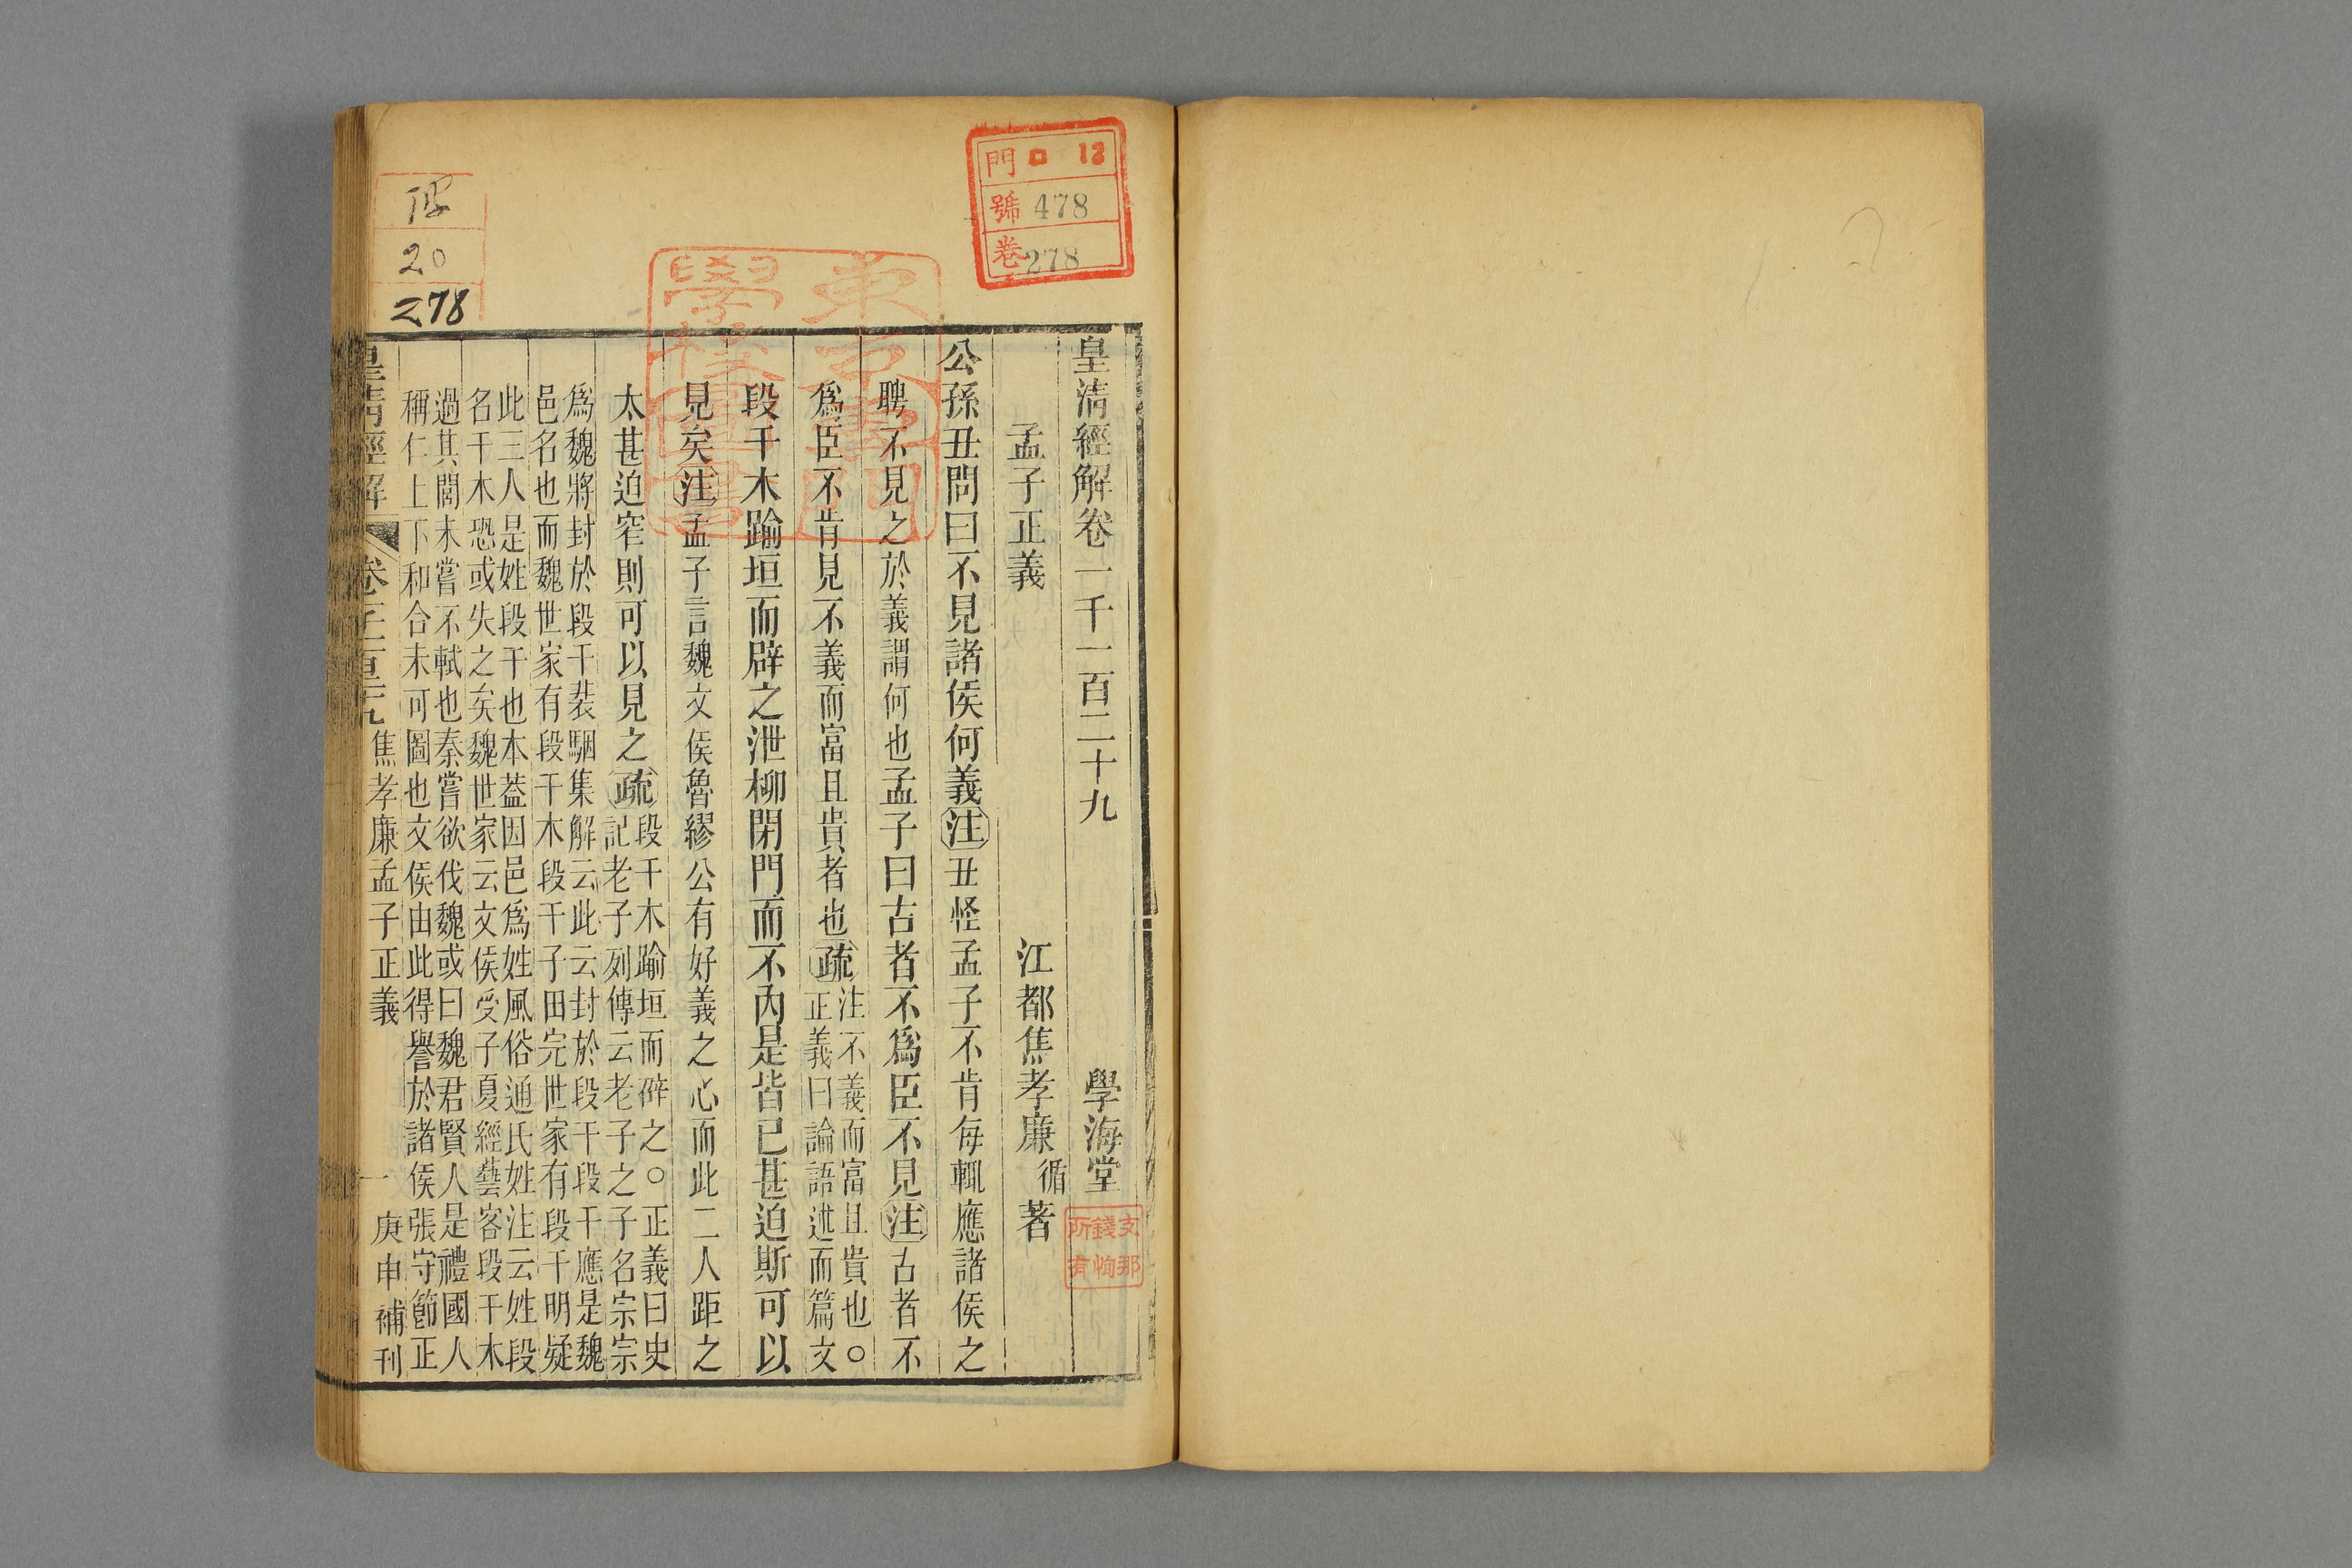 皇清經解卷一千一百二十九
學海堂
孟子正義
江都焦孝廉循著
公孫丑問曰不見諸侯何義注丑怪孟子不肯每輒應諸侯之
聘不見之於義謂何也孟子曰古者不爲臣不見注古者不
爲臣不肯見不義而富且貴者也疏注不義而富且貴也○
正義曰論語述而篇文
段干木踰垣而辟之泄柳閉門而不內是皆已甚迫斯可以
見矣注孟子言魏文侯魯繆公有好義之心而此二人距之
太甚迫窄則可以見之疏段干木踰垣而辟之○正義曰史
記老子列傳云老子之子名宗宗
爲魏將封於段干裴駰集解云此云封於段干段干應是魏
邑名也而魏世家有段干木段干子田完世家有段干明疑
此三人是姓段干也本蓋因邑爲姓風俗通氏姓注云姓段
名干木恐或失之矣魏世家云文侯受子夏經藝客段干木
過其閭未嘗不軾也秦嘗欲伐魏或曰魏君賢人是禮國人
稱仁上下和合未可圖也文侯由此得譽於諸侯張守節正
皇清經解
焦孝廉孟子正義
一
庚申補刊
門 ロ 12
號 478
卷 278
東京專門
學校圖書
支那
錢恂
所有
20
278